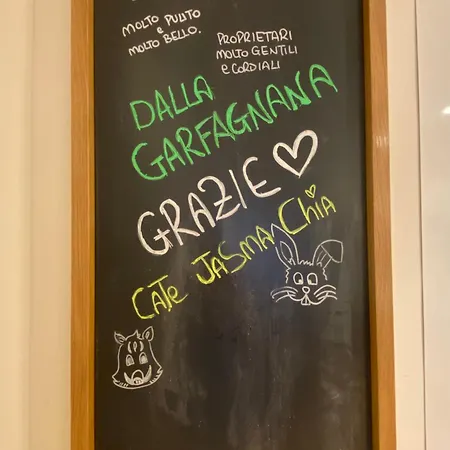 MOLTO PULITO
e
MOLTO BELLO.
PROPRIETARI
MOLTO GENTILI
e CORDIALI
DALLA
GARFAGNANA
GRAZIE
CATE JASMA CHIA